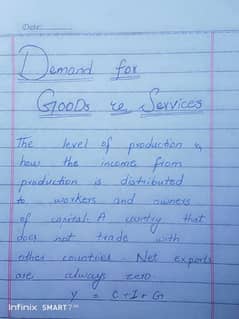 Date:
Demand for
Goods & Services
The level of production &
how the income from
production is distributed
to workers and owners
of capital. A country that
does not trade with
other countries Net exports
are always zero.
Y = C+I+G
Infinix SMART 7